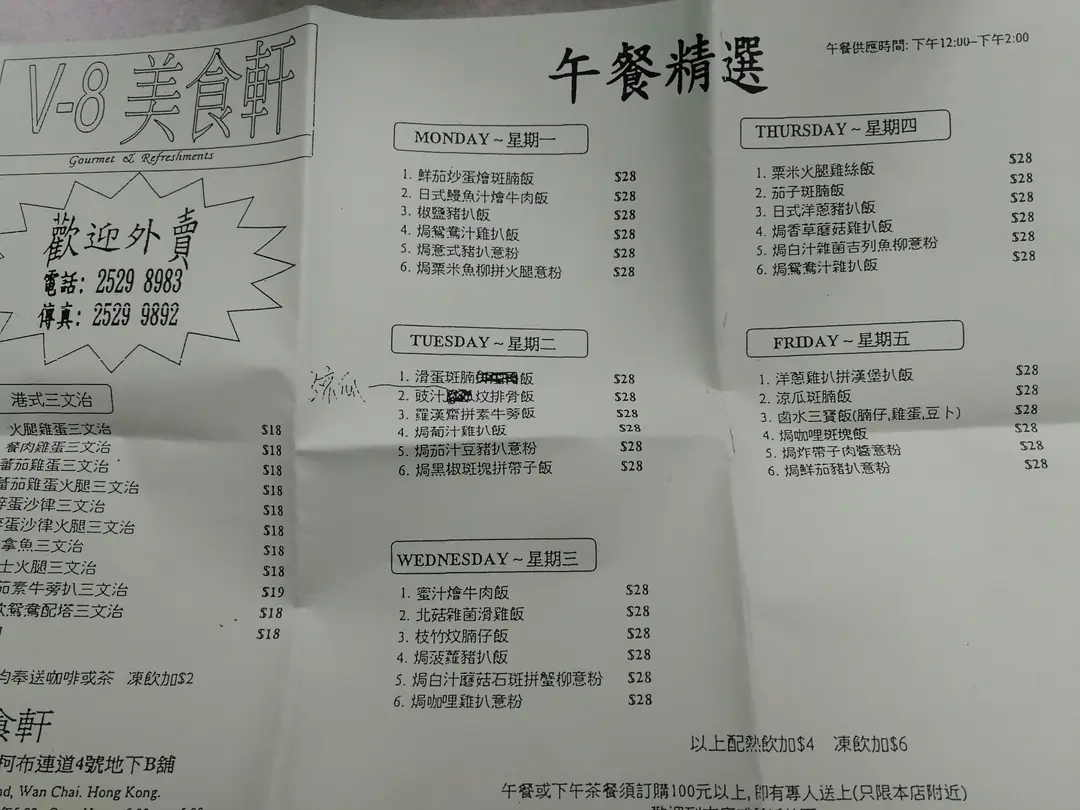 V-8 美食軒
Gourmet & Refreshments
歡迎外賣
電話: 2529 8983
傳真: 2529 9892
港式三文治
火腿雞蛋三文治 $18
餐肉雞蛋三文治 $18
蕃茄雞蛋三文治 $18
蕃茄雞蛋火腿三文治 $18
蛋沙律三文治 $18
蛋沙律火腿三文治 $18
拿魚三文治 $18
士火腿三文治 $18
茄素牛蒡扒三文治 $19
鴛鴦配塔三文治 $18
$18
均奉送咖啡或茶 凍飲加$2
食軒
柯布連道4號地下B舖
Wan Chai, Hong Kong.
午餐精選
午餐供應時間: 下午12:00–下午2:00
MONDAY ~ 星期一
1. 鮮茄炒蛋燴斑腩飯 $28
2. 日式鰻魚汁燴牛肉飯 $28
3. 椒鹽豬扒飯 $28
4. 焗鴛鴦汁雞扒飯 $28
5. 焗意式豬扒意粉 $28
6. 焗粟米魚柳拼火腿意粉 $28
TUESDAY ~ 星期二
1. 滑蛋斑腩飯 $28
涼瓜
2. 豉汁炆排骨飯 $28
3. 羅漢齋拼素牛蒡飯 $28
4. 焗葡汁雞扒飯 $28
5. 焗茄汁豆豬扒意粉 $28
6. 焗黑椒斑塊拼帶子飯 $28
WEDNESDAY ~ 星期三
1. 蜜汁燴牛肉飯 $28
2. 北菇雜菌滑雞飯 $28
3. 枝竹炆腩仔飯 $28
4. 焗菠蘿豬扒飯 $28
5. 焗白汁蘑菇石斑拼蟹柳意粉 $28
6. 焗咖哩雞扒意粉 $28
THURSDAY ~ 星期四
1. 粟米火腿雞絲飯 $28
2. 茄子斑腩飯 $28
3. 日式洋蔥豬扒飯 $28
4. 焗香草蘑菇雞扒飯 $28
5. 焗白汁雜菌吉列魚柳意粉 $28
6. 焗鴛鴦汁雜扒飯 $28
FRIDAY ~ 星期五
1. 洋蔥雞扒拼漢堡扒飯 $28
2. 涼瓜斑腩飯 $28
3. 鹵水三寶飯(腩仔,雞蛋,豆卜) $28
4. 焗咖哩斑塊飯 $28
5. 焗炸帶子肉醬意粉 $28
6. 焗鮮茄豬扒意粉 $28
以上配熱飲加$4 凍飲加$6
午餐或下午茶餐須訂購100元以上,即有專人送上(只限本店附近)